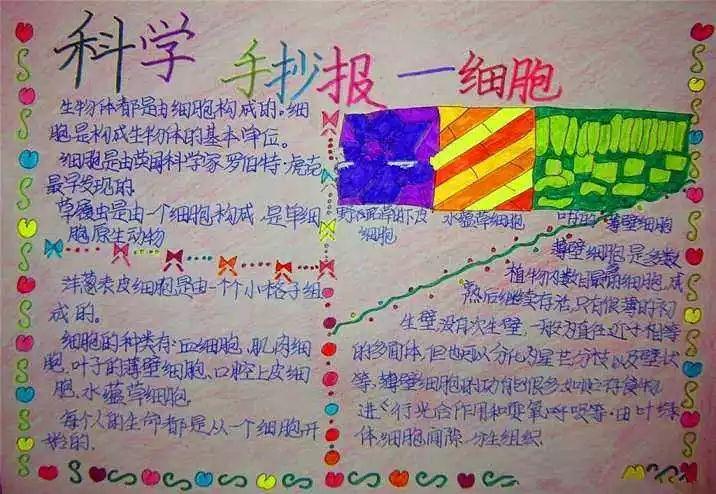 科学 手抄报 一细胞
生物体都是由细胞构成的。细
胞是构成生物体的基本单位。
细胞是由英国科学家罗伯特·虎克
最早发现的
草履虫是由一个细胞构成,是单细
胞原生动物
洋葱表皮细胞是由一个个小格子组
成的。
细胞的种类有:血细胞、肌肉细
胞、叶子的薄壁细胞、口腔上皮细
胞、水蕴草细胞
每个人的生命都是从一个细胞开
始的.
草 皮
细胞
水蕴草细胞
叶的薄壁细胞
薄壁细胞是多数
植物 细胞,成
熟后继续存活,只有很薄的初
生壁,没有次生壁,一般为直径近寸相等
的多面体,但也可以分化为星芒分枝以及壁状
等,薄壁细胞的功能也很多,如贮存食物
进行光合作用和 呼吸等·由叶绿
体细胞间隙、分生组织